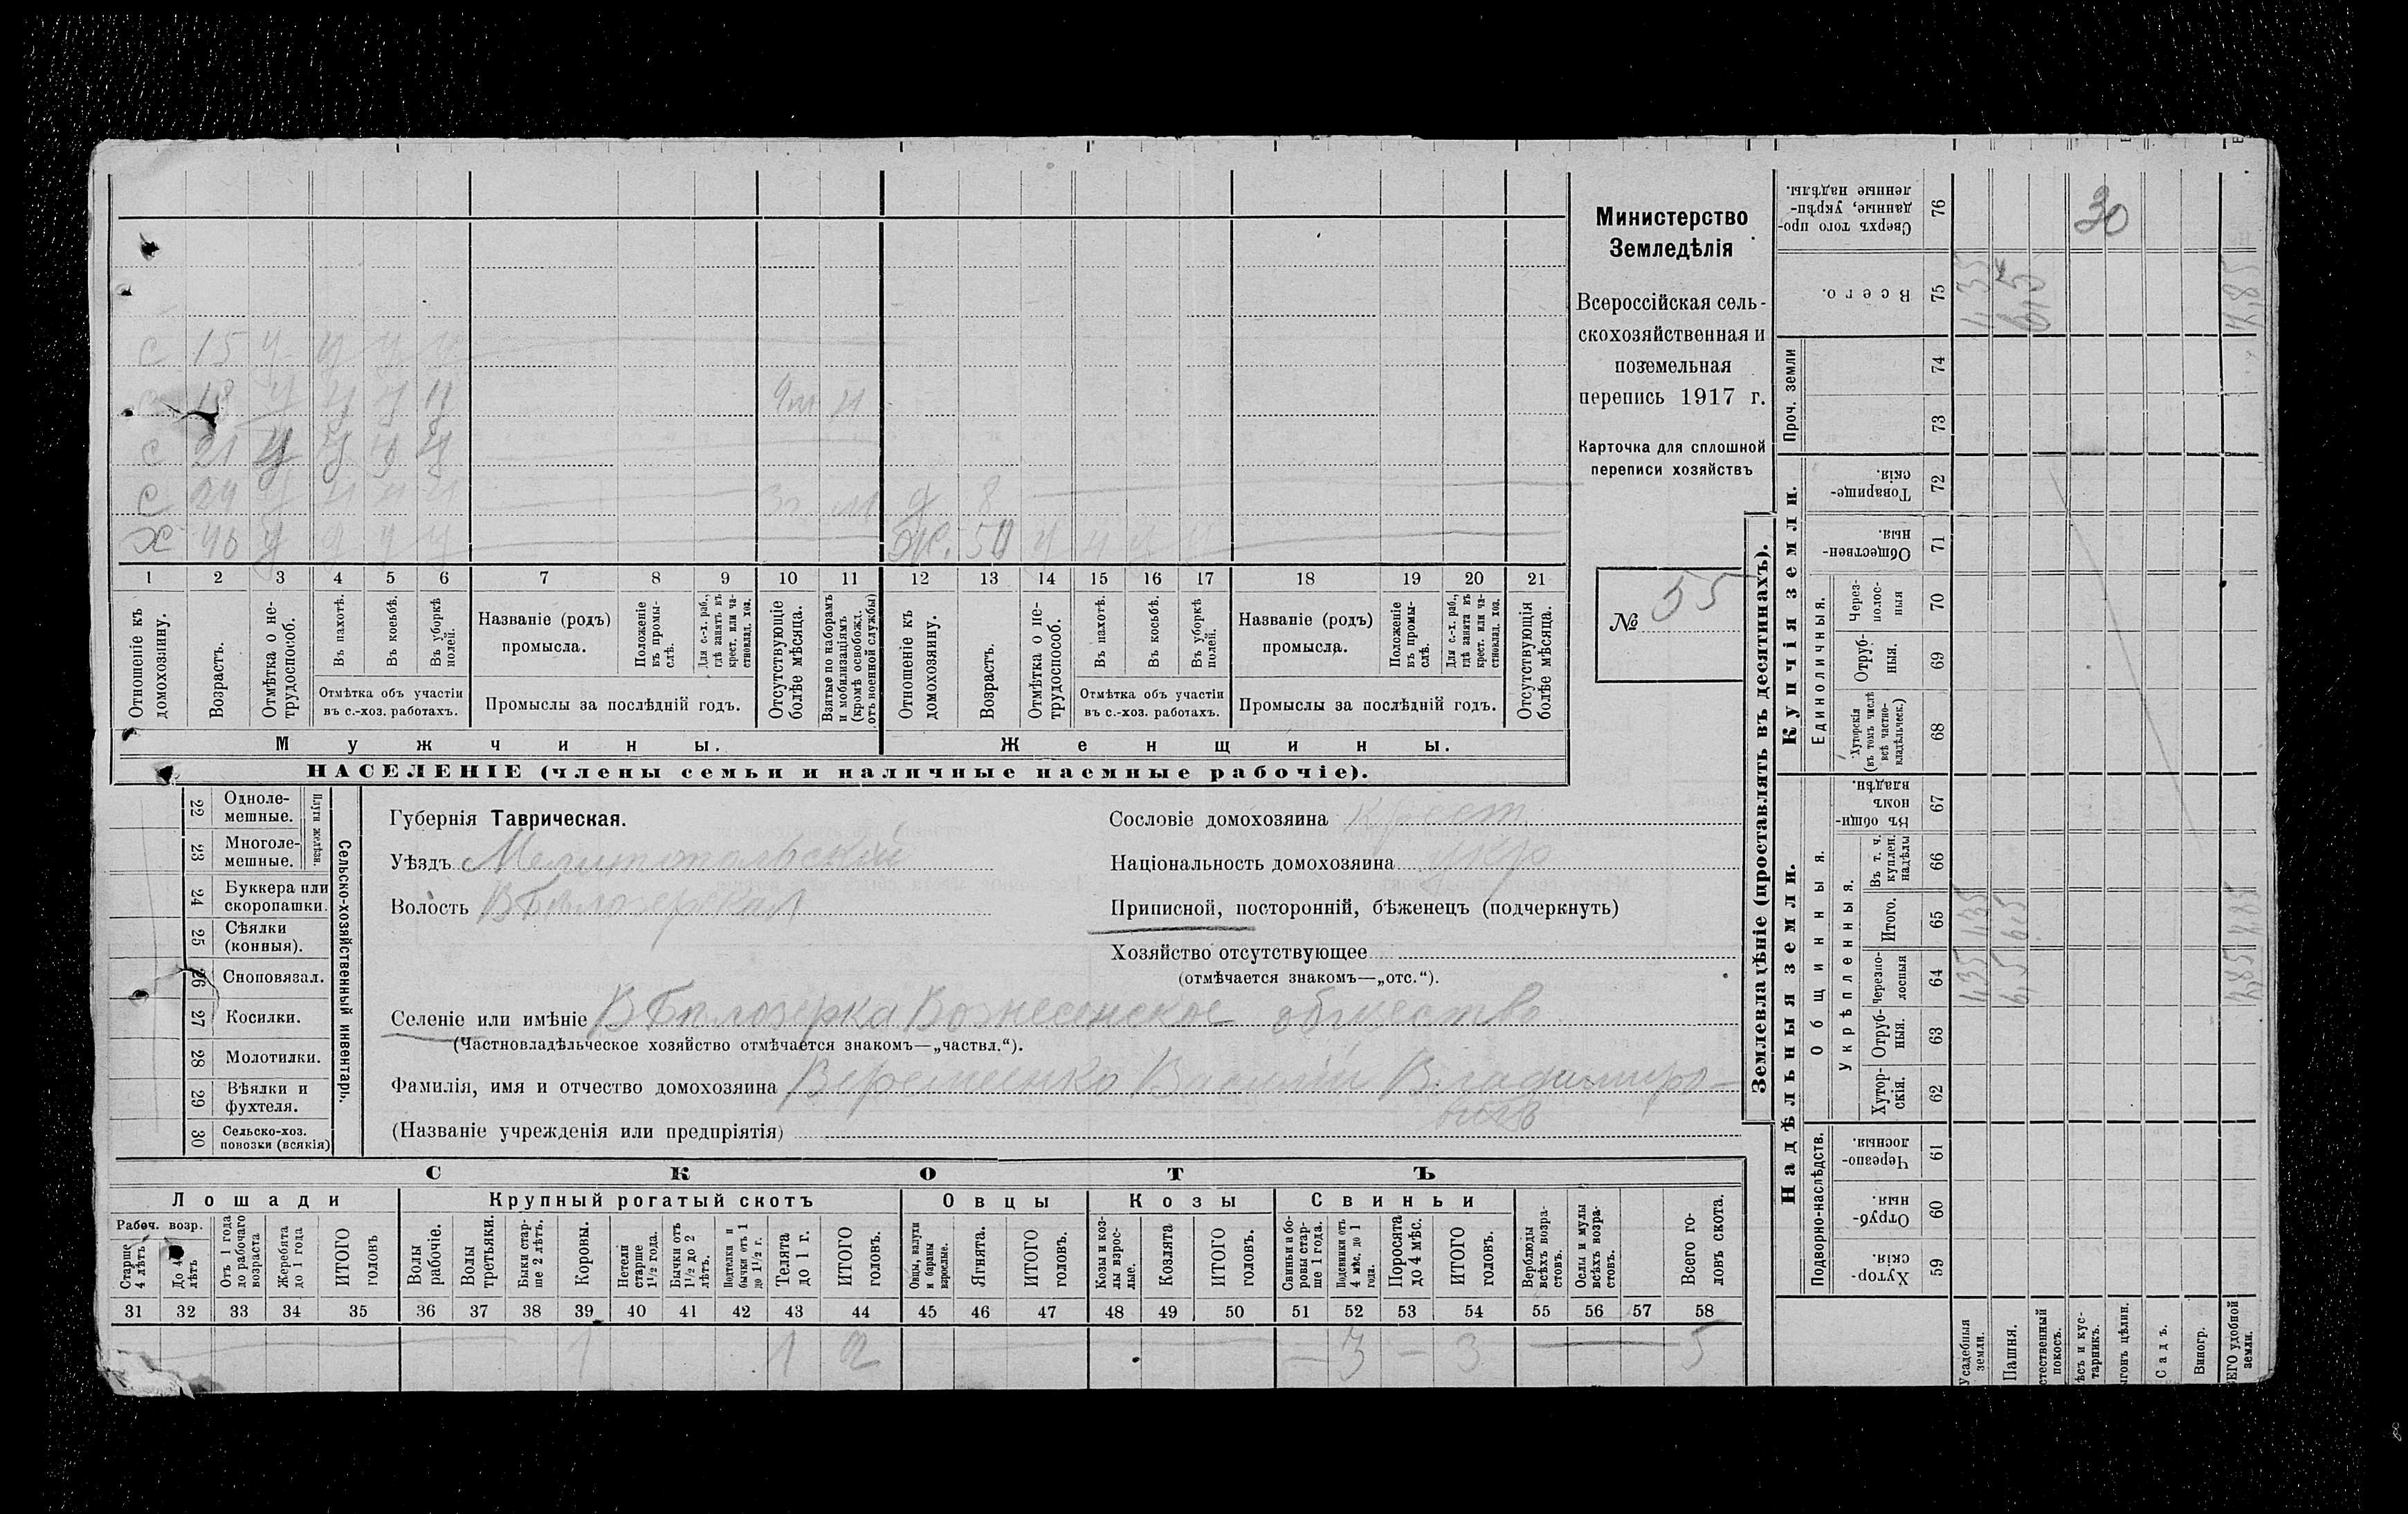 Министерство
Земледѣлія
Всероссійская сель-
скохозяйственная и
поземельная
перепись 1917 г.
Карточка для сплошной
переписи хозяйствъ
№ 55
с 15 у у у у
18 у у у у
с 21 у у у у
с 24 3г. м д 8
х 46 у у у у ж. 50 у у у
1 2 3 4 5 6 7 8 9 10 11 12 13 14 15 16 17 18 19 20 21
Отношеніе къ домохозяину.
Возрастъ.
Отмѣтка о не-трудоспособ.
Въ пахотѣ.
Въ косьбѣ.
Въ уборкѣ полей.
Отмѣтка объ участіи
въ с.-хоз. работахъ.
Названіе (родъ)
промысла.
Положеніе въ промы-слѣ.
Для с.-х. раб., гдѣ занятъ въ крест. или ча-стновлад. хоз.
Промыслы за послѣдній годъ.
Отсутствующіе болѣе мѣсяца.
Взятые по наборамъ и мобилизаціямъ (кромѣ освобожд. отъ военной службы)
Отношеніе къ домохозяину.
Возрастъ.
Отмѣтка о не-трудоспособ.
Въ пахотѣ.
Въ косьбѣ.
Въ уборкѣ полей.
Отмѣтка объ участіи
въ с.-хоз. работахъ.
Названіе (родъ)
промысла.
Положеніе въ промы-слѣ.
Для с.-х. раб., гдѣ занята въ крест. или ча-стновлад. хоз.
Промыслы за послѣдній годъ.
Отсутствующія болѣе мѣсяца.
Мужчины. Женщины.
НАСЕЛЕНІЕ (члены семьи и наличные наемные рабочіе).
22 Одноле-мешные.
23 Многоле-мешные.
Плуги желѣзн.
24 Буккера или скоропашки.
25 Сѣялки (конныя).
26 Сноповязал.
27 Косилки.
28 Молотилки.
29 Вѣялки и фухтеля.
30 Сельско-хоз. повозки (всякія)
Сельско-хозяйственный инвентарь.
Губернія Таврическая.
Уѣздъ Мелитопольскій
Волость В Бѣлозерская
Сословіе домохозяина крест.
Національность домохозяина
Приписной, посторонній, бѣженецъ (подчеркнуть)
Хозяйство отсутствующее
(отмѣчается знакомъ—„отс.“).
Селеніе или имѣніе В Бѣлозерка Вознесенское общество
(Частновладѣльческое хозяйство отмѣчается знакомъ—„частвл.“).
Фамилія, имя и отчество домохозяина Василій Владимиро-
вичъ
(Названіе учрежденія или предпріятія)
СКОТЪ
Лошади Крупный рогатый скотъ Овцы Козы Свиньи
Рабоч. возр.
Старше 4 лѣтъ
До 4 лѣтъ
Отъ 1 года до рабочаго возраста
Жеребята до 1 года
ИТОГО головъ
Волы рабочіе.
Волы третьяки.
Быки стар-ше 2 лѣтъ.
Коровы.
Нетели старше 1½ года.
Бычки отъ 1½ до 2 лѣтъ.
Подтелки и бычки отъ 1 до 1½ г.
Телята до 1 г.
ИТОГО головъ.
Овцы, валухи и бараны взрослые.
Ягнята.
ИТОГО головъ.
Козы и коз-лы взрос-лые.
Козлята
ИТОГО головъ.
Свиньи и бо-ровы стар-ше 1 года.
Подсвинки отъ 4 мѣс. до 1 года.
Поросята до 4 мѣс.
ИТОГО головъ.
Верблюды всѣхъ возра-стовъ.
Ослы и мулы всѣхъ возра-стовъ.
Всего го-ловъ скота.
31 32 33 34 35 36 37 38 39 40 41 42 43 44 45 46 47 48 49 50 51 52 53 54 55 56 57 58
1 1 2 — 3 — 3 — 5
Землевладѣніе (проставлять въ десятинахъ).
Надѣльныя земли. Купчія земли.
Проч. земли
Подворно-наслѣдств.
Общинныя.
Укрѣпленныя.
Единоличныя.
Сверхъ того про-данные, укрѣп-ленные надѣлы. 76 30
Всего. 75 1,35 6,5
74
73
Товарище-скія. 72
Обществен-ныя. 71
Через-полос-ныя 70
Отруб-ныя. 69
Хуторскія (въ томъ числѣ всѣ частно-владѣльческ.) 68
Въ общи-номъ владѣн. 67
Въ т. ч. куплен. надѣлы 66
Итого. 65 1,35 6,5
Черезпо-лосныя 64 1,35 6,5
Отруб-ныя. 63
Хутор-скія. 62
Черезпо-лосныя. 61
Отруб-ныя. 60
Хутор-скія. 59
Усадебныя земли.
Пашня.
стественный покосъ.
ѣсъ и кус-тарникъ.
гонъ цѣлин.
Садъ.
Виногр.
ЕГО удобной земли.